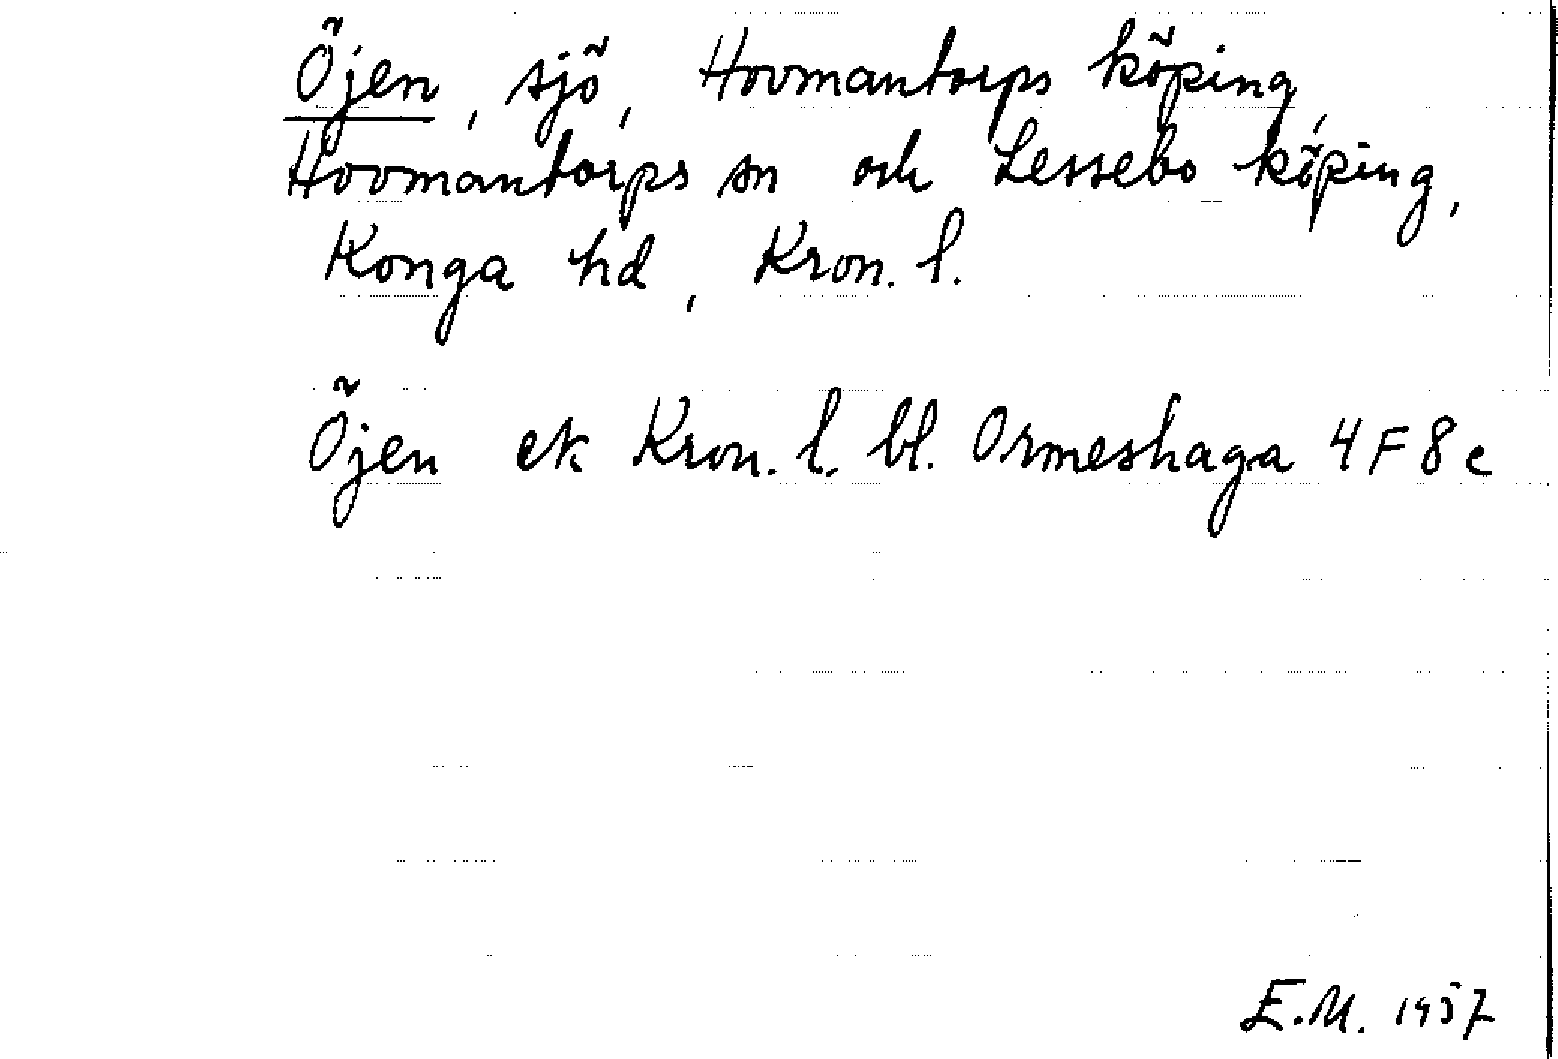 Öjen, sjö, Hovmantorps köping,
Hovmantorps sn och Lessebo köping,
Konga hd, Kron. l.
Öjen ek Kron. l. bl. Ormeshaga 4F8c
E.M. 1957